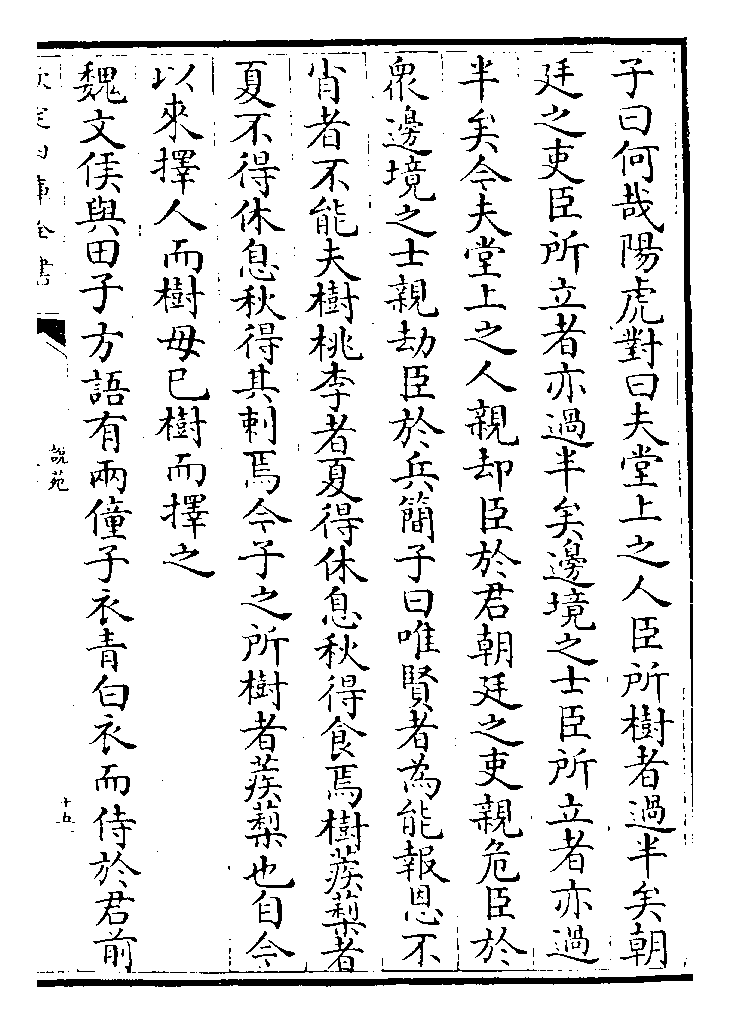 子曰何哉陽虎對曰夫堂上之人臣所樹者過半矣朝
廷之吏臣所立者亦過半矣邊境之士臣所立者亦過
半矣今夫堂上之人親却臣於君朝廷之吏親危臣於
衆邊境之士親劫臣於兵簡子曰唯賢者為能報恩不
肖者不能夫樹桃李者夏得休息秋得食焉樹蒺藜者
夏不得休息秋得其刺焉今子之所樹者蒺藜也自今
以來擇人而樹毋已樹而擇之
魏文侯與田子方語有兩僮子衣青白衣而侍於君前
欽定四庫全書
說苑
十五